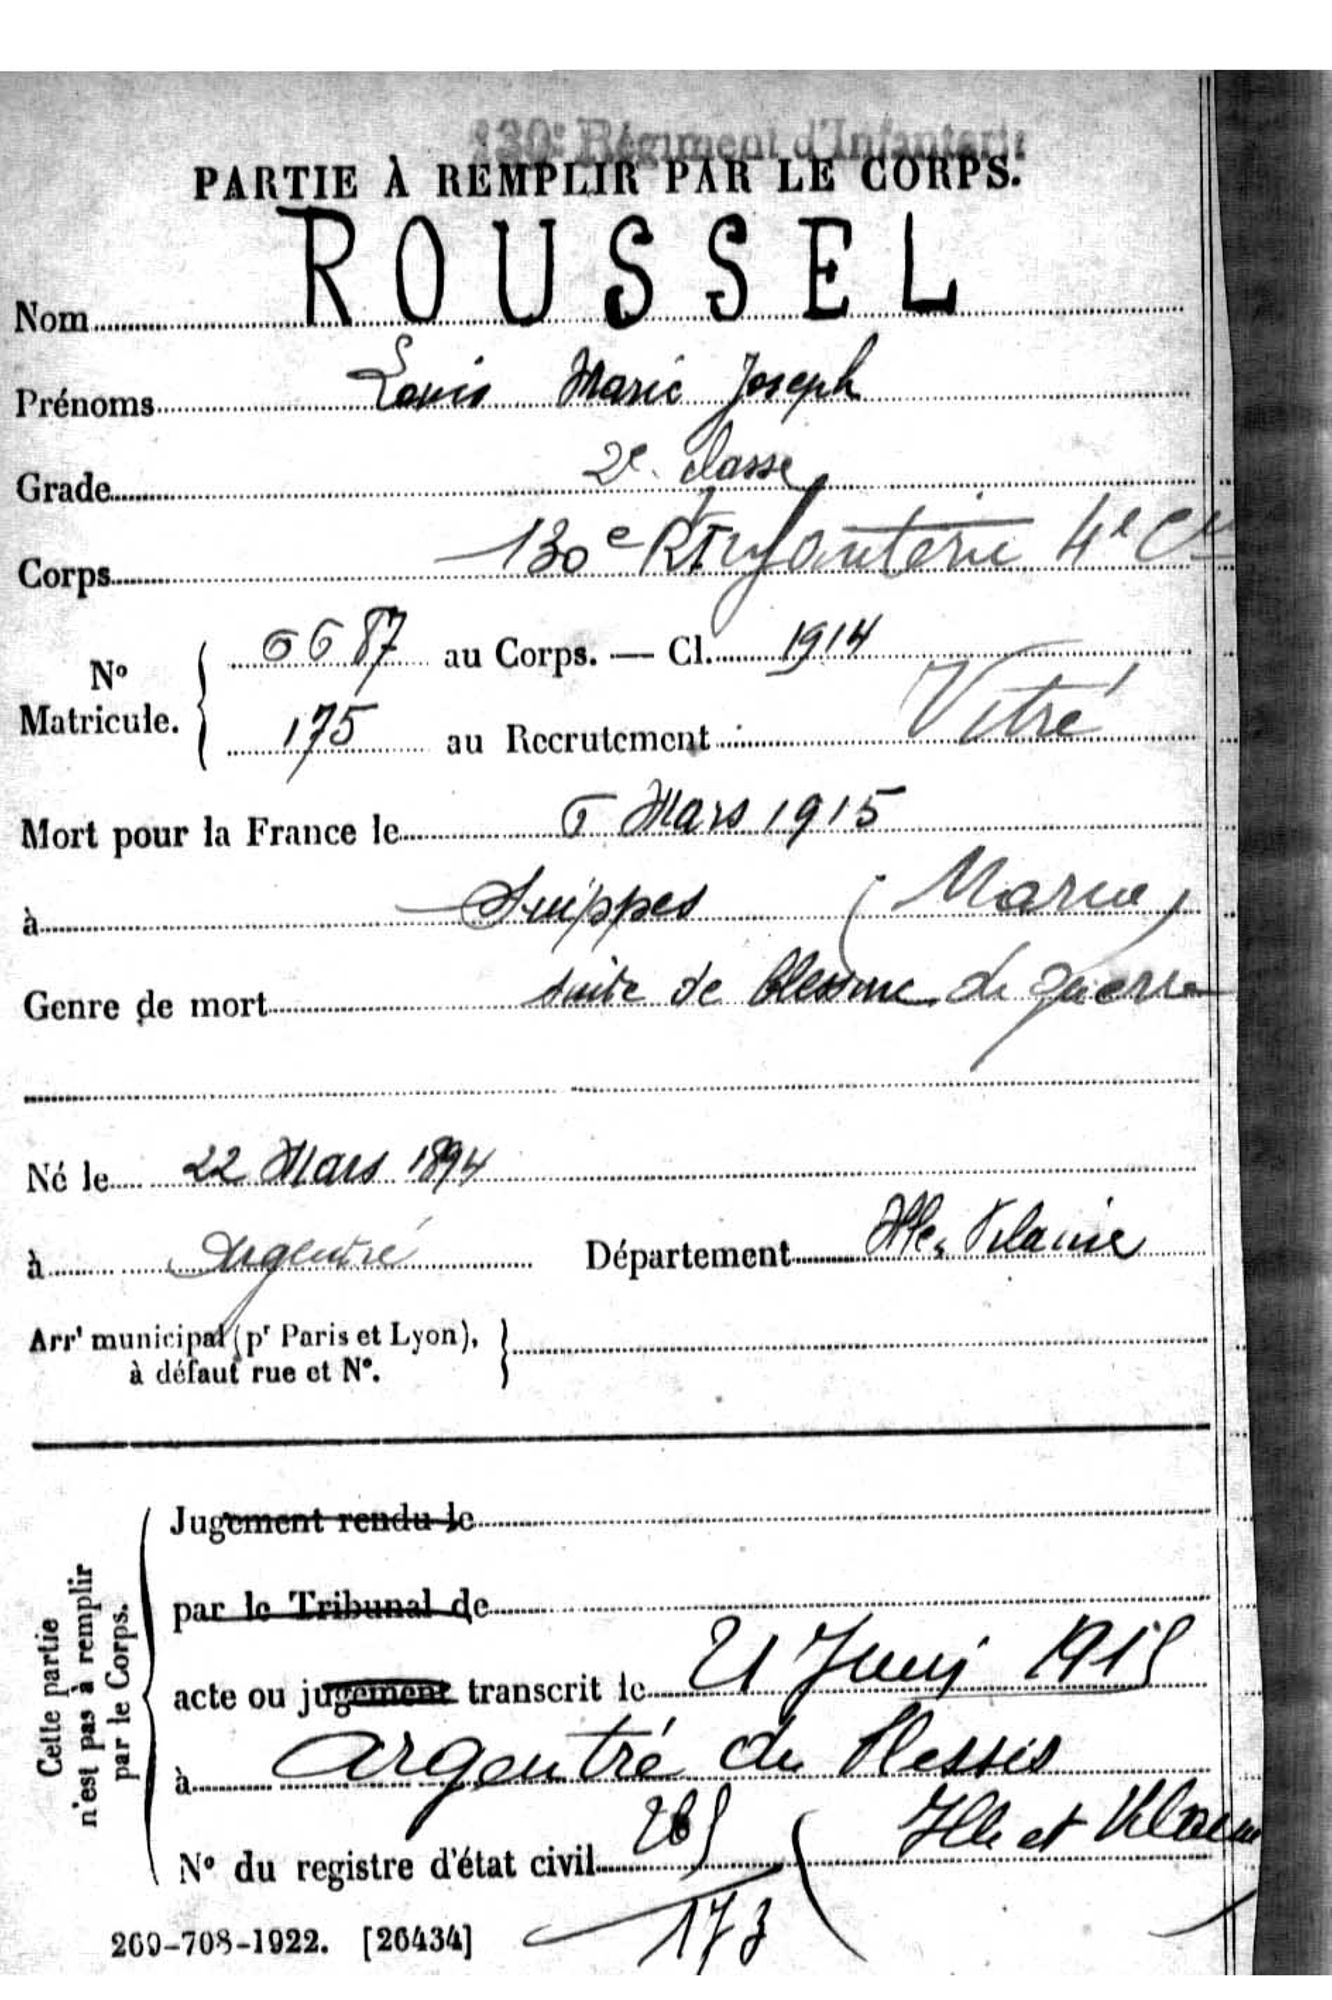 130e Régiment d'Infanterie
PARTIE À REMPLIR PAR LE CORPS.
Nom ROUSSEL
Prénoms Louis Marie Joseph
Grade 2e classe
Corps 130e RInfanterie 4e Cie
No Matricule. { 6687 au Corps. — Cl. 1914
175 au Recrutement Vitré
Mort pour la France le 6 Mars 1915
à Suippes (Marne)
Genre de mort suite de blessure de guerre
Né le 22 Mars 1894
à Argentré Département Ille-Vilaine
Arrt municipal (pr Paris et Lyon), }
à défaut rue et No.
Cette partie
n'est pas à remplir
par le Corps.
Jugement rendu le
par le Tribunal de
acte ou jugement transcrit le 21 Juin 1915
à Argentré du Plessis
No du registre d'état civil 265 (Ille et Vilaine
269-708-1922. [26434] 173